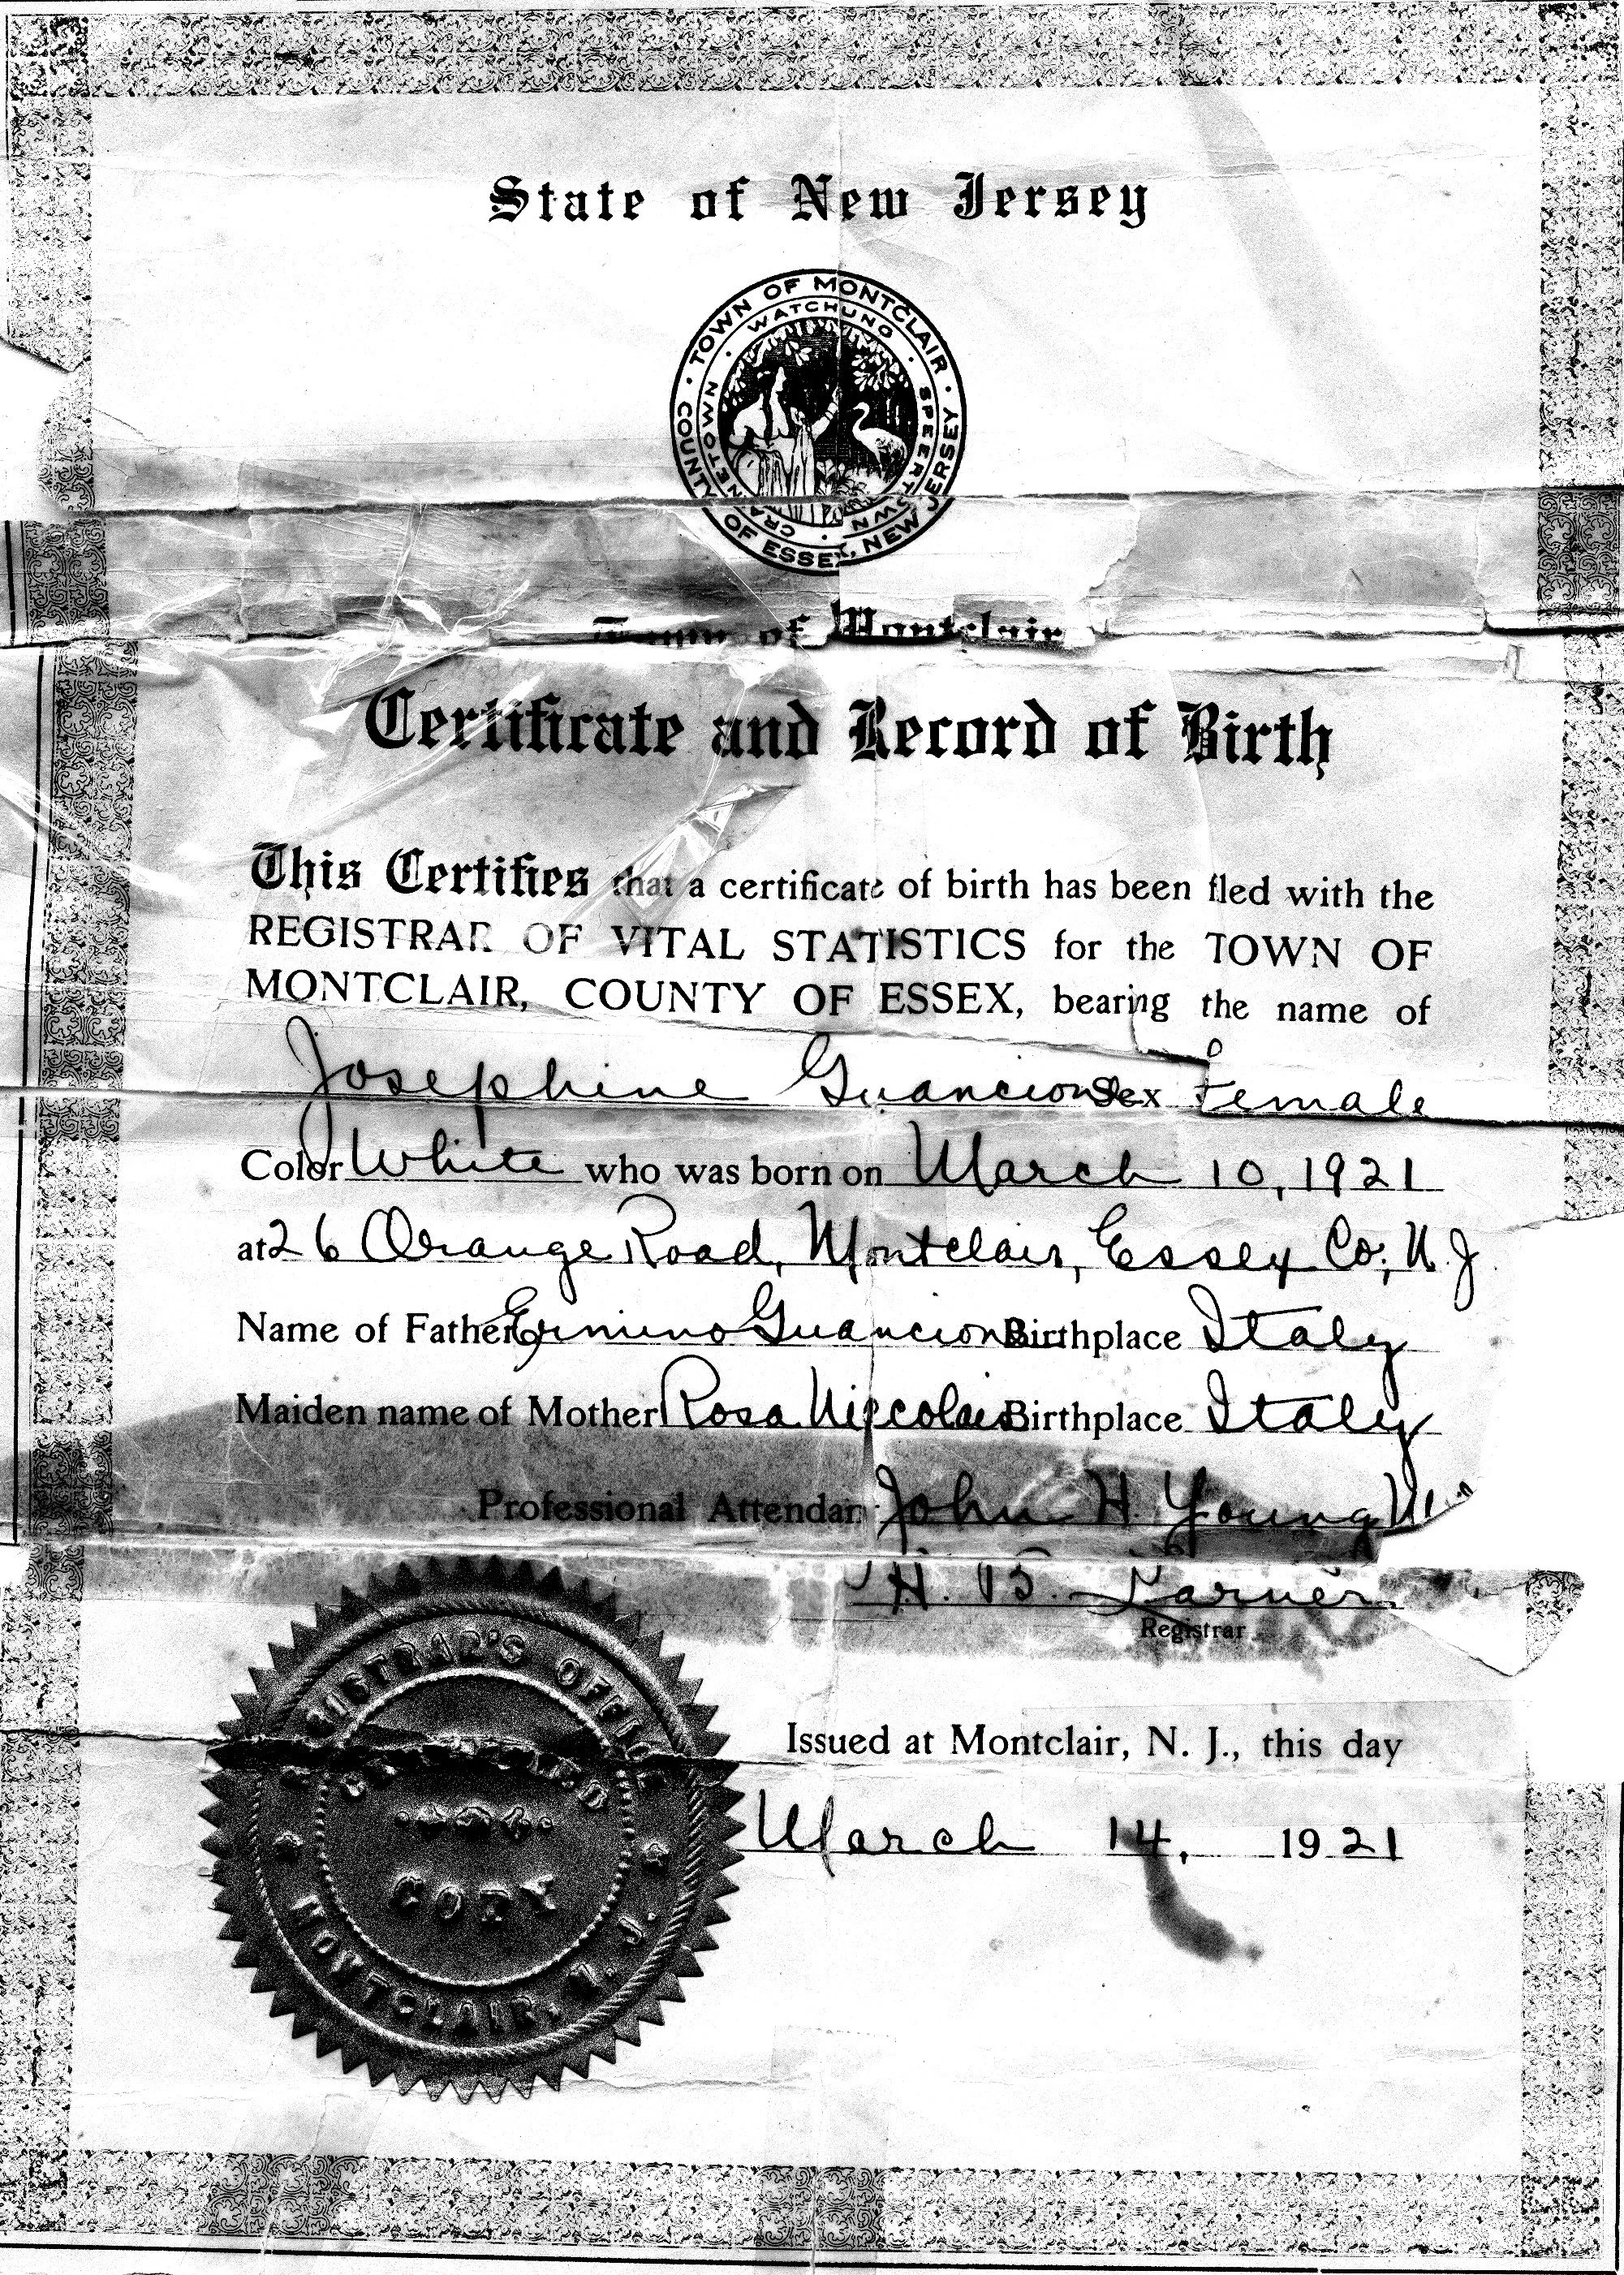 State of New Jersey
TOWN OF MONTCLAIR · COUNTY OF ESSEX, NEW JERSEY
WATCHUNG · SPEERTOWN · CRANETOWN
Town of Montclair
Certificate and Record of Birth
This Certifies that a certificate of birth has been filed with the
REGISTRAR OF VITAL STATISTICS for the TOWN OF
MONTCLAIR, COUNTY OF ESSEX, bearing the name of
Josephine Guancione Sex Female
Color White who was born on March 10, 1921
at 26 Orange Road, Montclair, Essex Co., N.J.
Name of Father Ermino Guancione Birthplace Italy
Maiden name of Mother Rosa Niccolais Birthplace Italy
Professional Attendant John H. Young
H. B.
Registrar
REGISTRAR'S OFFICE
COPY
MONTCLAIR, N. J.
Issued at Montclair, N. J., this day
March 14, 1921